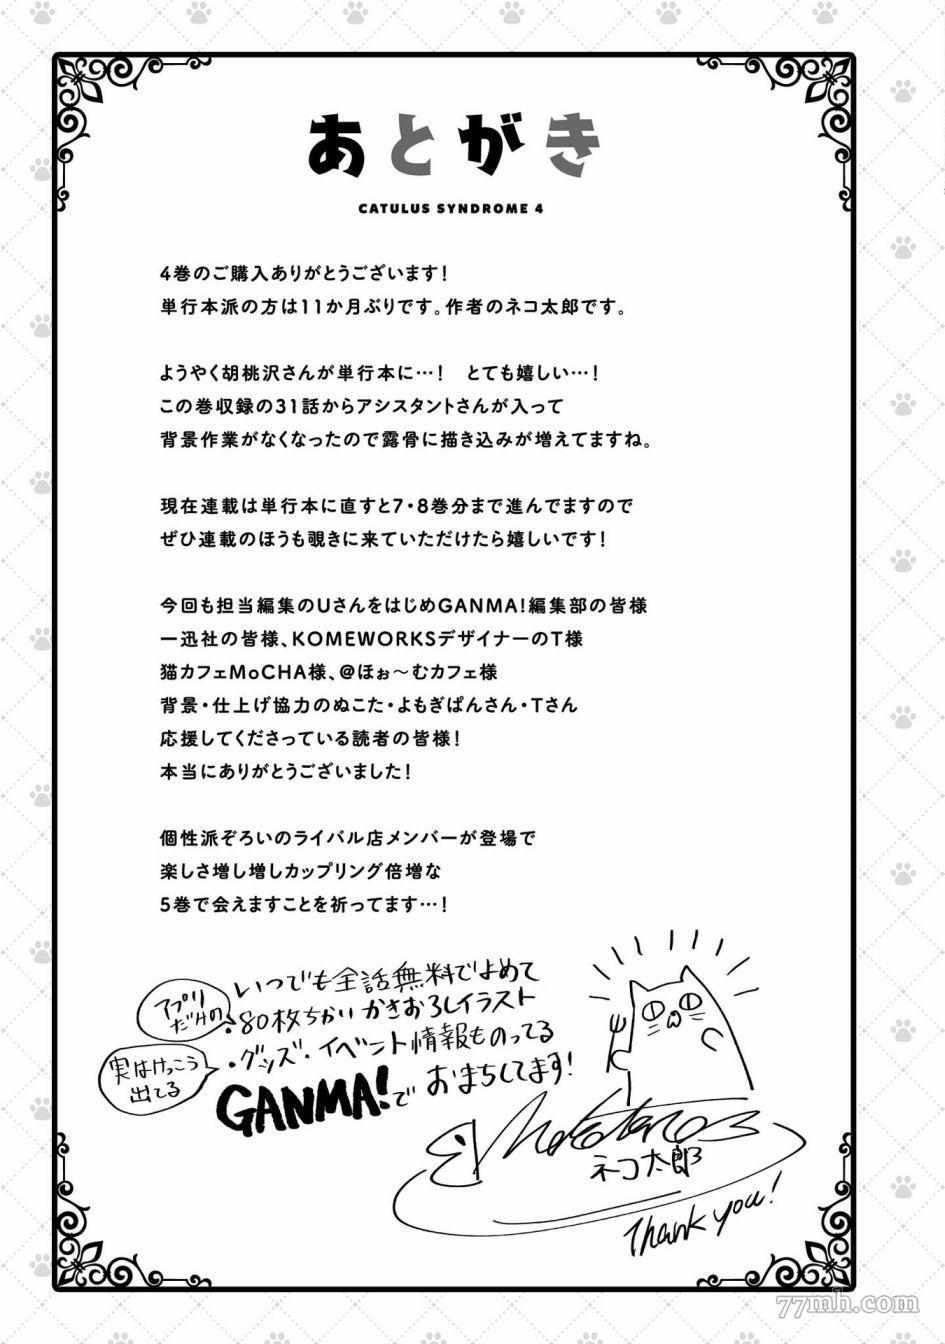 あとがき
CATULUS SYNDROME 4
4巻のご購入ありがとうございます！
単行本派の方は11か月ぶりです。作者のネコ太郎です。
ようやく胡桃沢さんが単行本に…！　とても嬉しい…！
この巻収録の31話からアシスタントさんが入って
背景作業がなくなったので露骨に描き込みが増えてますね。
現在連載は単行本に直すと7・8巻分まで進んでますので
ぜひ連載のほうも覗きに来ていただけたら嬉しいです！
今回も担当編集のUさんをはじめGANMA！編集部の皆様
一迅社の皆様、KOMEWORKSデザイナーのT様
猫カフェMoCHA様、@ほぉ～むカフェ様
背景・仕上げ協力のぬこた・よもぎぱんさん・Tさん
応援してくださっている読者の皆様！
本当にありがとうございました！
個性派ぞろいのライバル店メンバーが登場で
楽しさ増し増しカップリング倍増な
5巻で会えますことを祈ってます…！
・いつでも全話無料でよめて
アプリだけの
・80枚ちかいかきおろしイラスト
実はけっこう出てる
・グッズ・イベント情報ものってる
GANMA!でおまちしてます！
Nekotaro
ネコ太郎
Thank you!
77mh.com